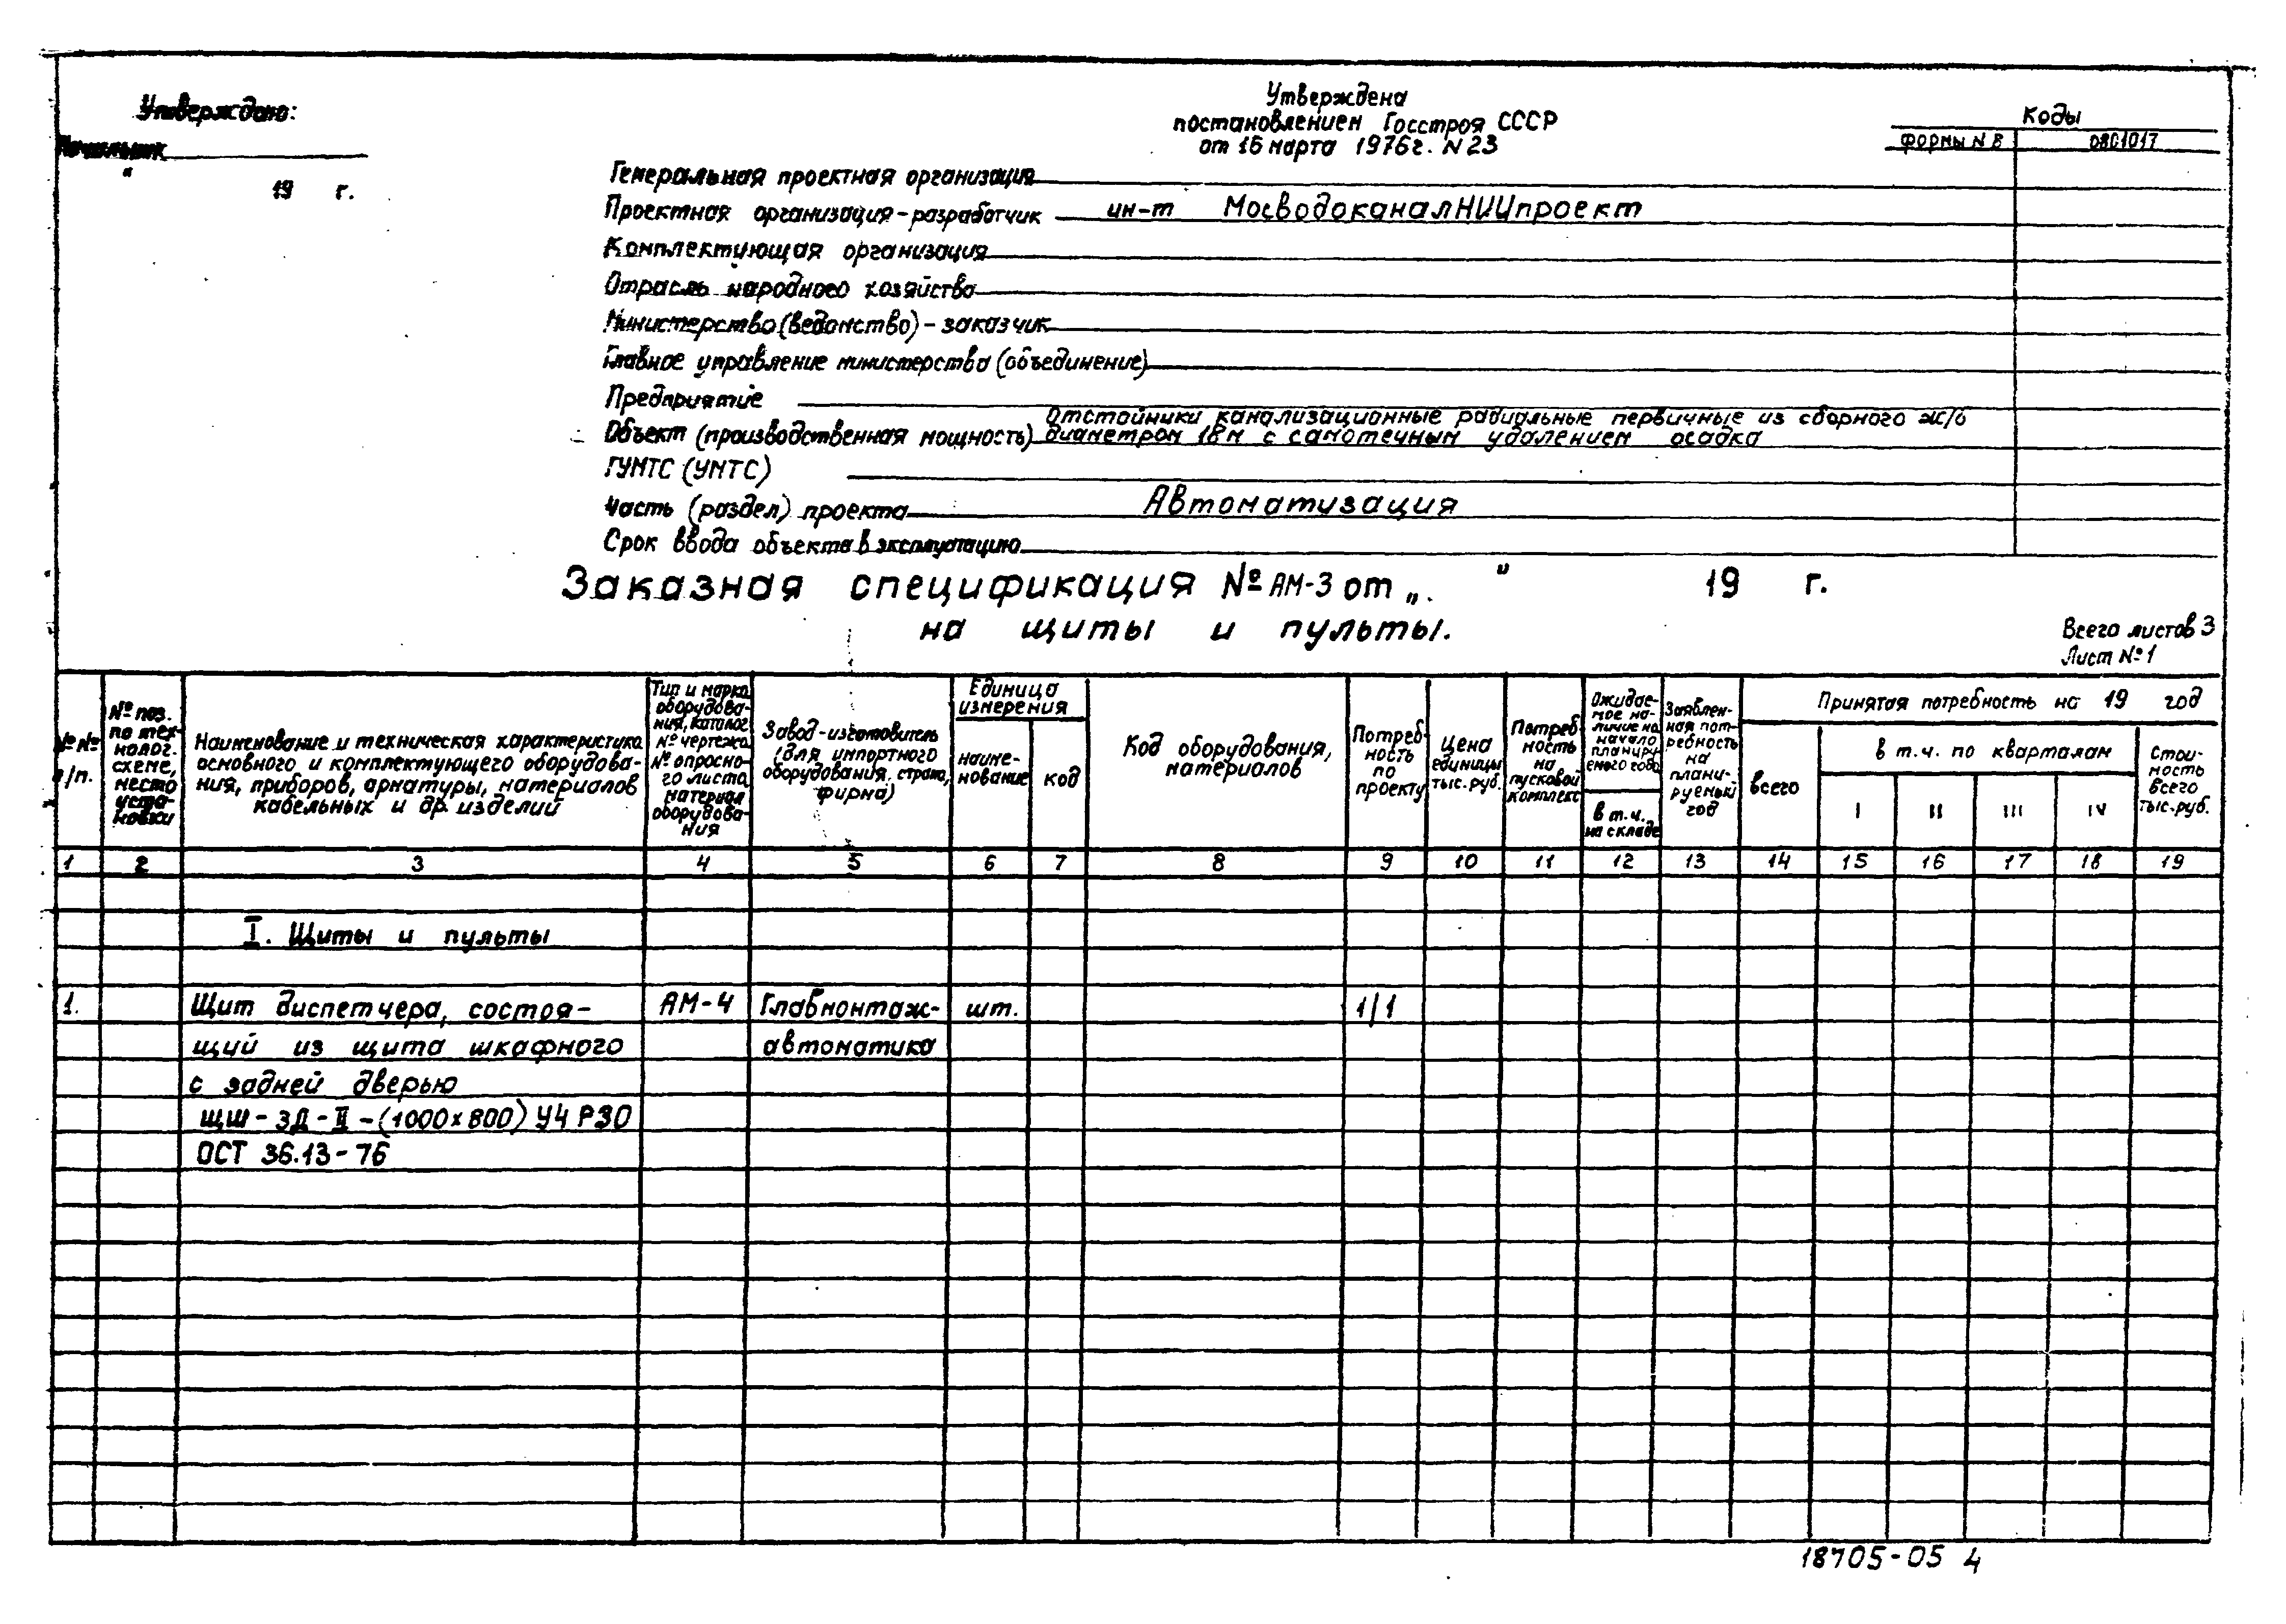 Утверждаю:
Начальник
"
19 г.
Утверждена
постановлением Госстроя СССР
от 16 марта 1976г. N 23
Коды
формы N 8 0801017
Генеральная проектная организация
Проектная организация-разработчик ин-т МосводоканалНИИпроект
Комплектующая организация
Отрасль народного хозяйства
Министерство (ведомство) - заказчик
Главное управление министерства (объединение)
Предприятие
Отстойники канализационные радиальные первичные из сборного ж/б
Объект (производственная мощность) диаметром 18м с самотечным удалением осадка
ГУМТС (УМТС)
Часть (раздел) проекта Автоматизация
Срок ввода объекта в эксплуатацию
Заказная спецификация № АМ-3 от „ " 19 г.
на щиты и пульты.
Всего листов 3
Лист № 1
№№
п/п.
№ поз.
по тех-
нолог.
схеме,
место
уста-
новки
Наименование и техническая характеристика
основного и комплектующего оборудова-
ния, приборов, арматуры, материалов
кабельных и др. изделий
Тип и марка
оборудова-
ния, каталог
№ чертежа
№ опросно-
го листа,
материал
оборудова-
ния
Завод-изготовитель
(для импортного
оборудования, страна,
фирма)
Единица
измерения
наиме-
нование
код
Код оборудования,
материалов
Потреб-
ность
по
проекту
Цена
единицы
тыс. руб.
Потреб-
ность
на
пусковой
комплекс
Ожидае-
мое на-
личие на
начало
планиру-
емого года
в т.ч.
на складе
Заявлен-
ная пот-
ребность
на
плани-
руемый
год
Принятая потребность на 19 год
всего
в т.ч. по кварталам
I II III IV
Стои-
мость
всего
тыс. руб.
1 2 3 4 5 6 7 8 9 10 11 12 13 14 15 16 17 18 19
I. Щиты и пульты
1. Щит диспетчера, состоя- АМ-4 Главмонтаж- шт. 1/1
щий из щита шкафного автоматика
с задней дверью
ЩШ-ЗД-II-(1000х800) У4 Р30
ОСТ 36.13-76
18705-05 4